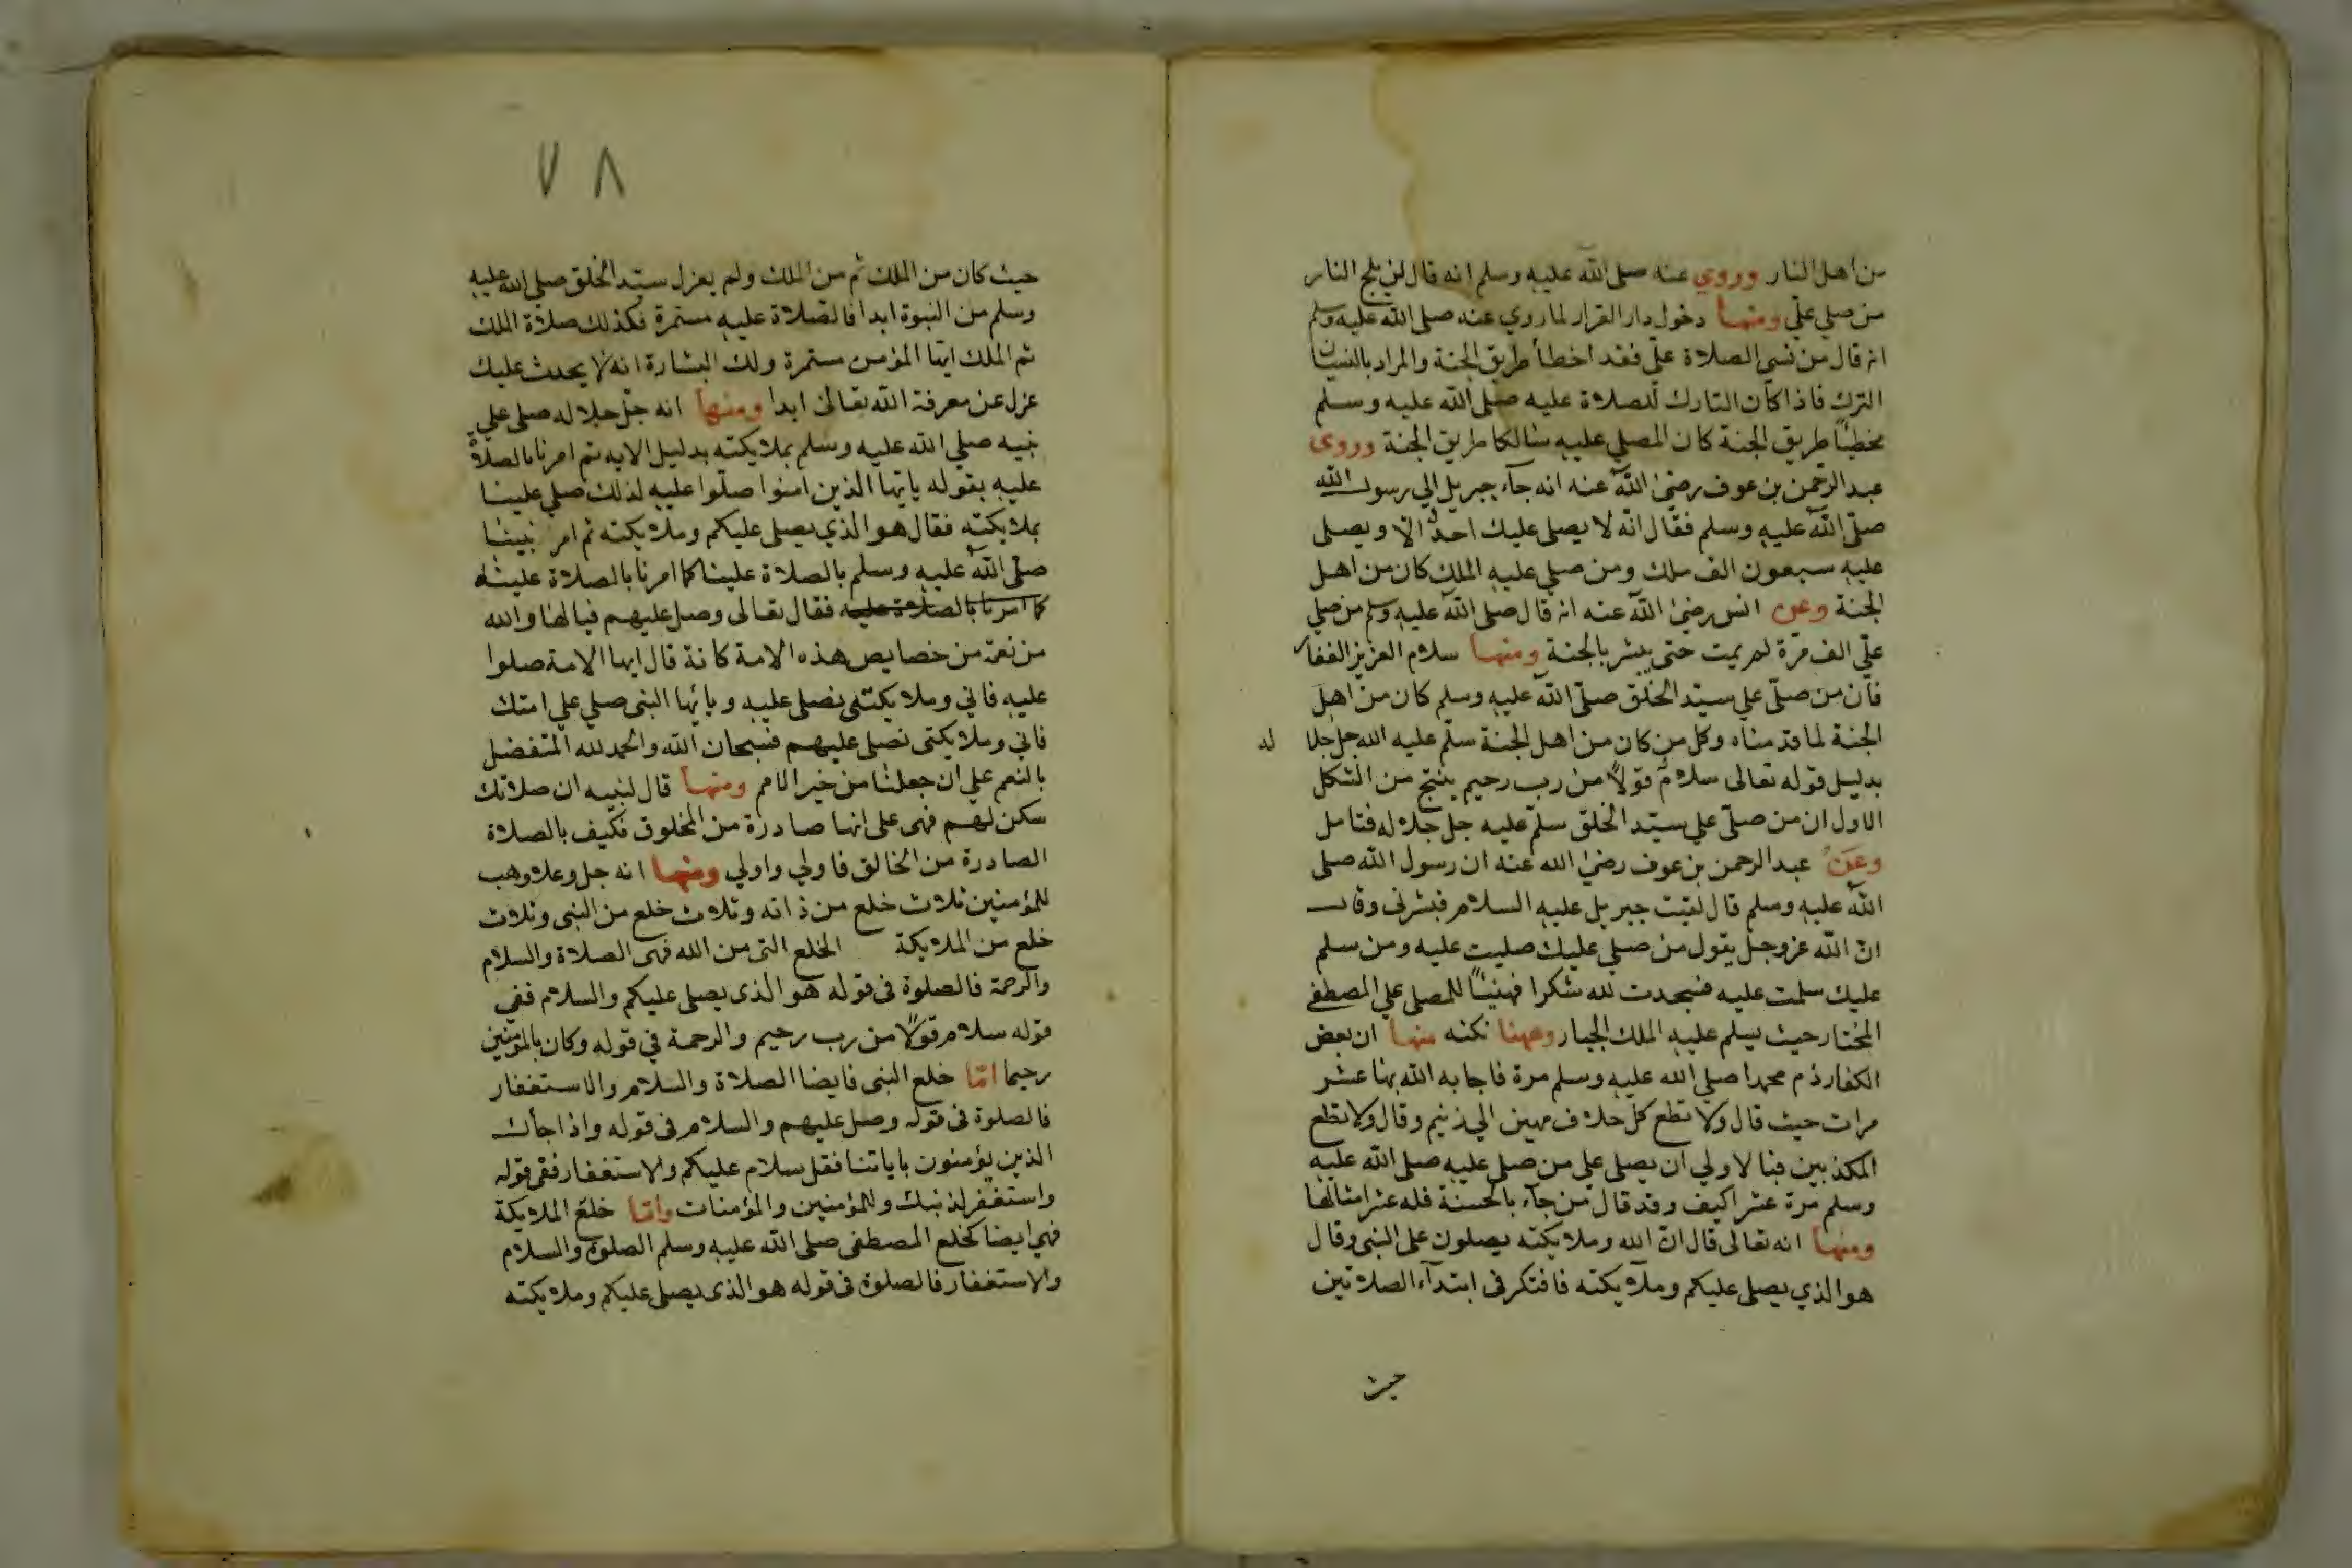 من اهل النار وروي عنه صلى الله عليه وسلم انه قال لن يلج النار
من صلي علي ومنها دخول دار القرار لما روي عنه صلى الله عليه وسلم
انه قال من نسي الصلاة علي فقد اخطأ طريق الجنة والمراد بالنسيان
الترك فاذا كان التارك للصلاة عليه صلى الله عليه وسلم
مخطئا طريق الجنة كان المصلي عليه سالكا طريق الجنة وروى
عبد الرحمن بن عوف رضي الله عنه انه جآء جبريل الي رسول الله
صلى الله عليه وسلم فقال انه لا يصلى عليك احد الا ويصلى
عليه سبعون الف ملك ومن صلي عليه الملك كان من اهل
الجنة وعن انس رضي الله عنه انه قال صلى الله عليه وسلم من صلي
علي الف مرة لم يمت حتى يبشر بالجنة ومنها سلام العزيز الغفار
فان من صلى علي سيد الخلق صلى الله عليه وسلم كان من اهل
الجنة لما قدمناه وكل من كان من اهل الجنة سلم عليه الله جل جلا له
بدليل قوله تعالى سلام قولا من رب رحيم ينتج من الشكل
الاول ان من صلى علي سيد الخلق سلم عليه جل جلاله فتامل
وعن عبد الرحمن بن عوف رضي الله عنه ان رسول الله صلى
الله عليه وسلم قال لقيت جبريل عليه السلام فبشرني وقال
ان الله عز وجل يقول من صلي عليك صليت عليه ومن سلم
عليك سلمت عليه فسجدت لله شكرا فهنيئا للمصلي علي المصطفي
المختار حيث يسلم عليه الملك الجبار وههنا نكته منها ان بعض
الكفار ذم محمدا صلي الله عليه وسلم مرة فاجابه الله بهنا عشر
مرات حيث قال ولا تطع كل حلاف مهين الي زنيم وقال ولا تطع
المكذبين فبالاولي ان يصلي علي من صلي عليه صلى الله عليه
وسلم مرة عشرا كيف وقد قال من جآء بالحسنة فله عشر امثالها
ومنها انه تعالى قال ان الله وملايكته يصلون على النبي وقال
هو الذي يصلي عليكم وملآيكته فافتكر في ابتدآء الصلاتين
حيث
٧٨
حيث كان من الملك ثم من الملك ولم يعزل سيد الخلق صلى الله عليه
وسلم من النبوة ابدا فالصلاة عليه مستمرة فكذلك صلاة الملك
ثم الملك ايها المؤمن مستمرة ولك البشارة انه لا يحدث عليك
عزل عن معرفة الله تعالى ابدا ومنها انه جل جلاله صلى علي
نبيه صلى الله عليه وسلم بملايكته بدليل الايه ثم امرنا بالصلاة
عليه بقوله يايها الذين امنوا صلوا عليه لذلك صلي علينا
بملايكته فقال هو الذي يصلى عليكم وملايكته ثم امر نبينا
صلى الله عليه وسلم بالصلاة علينا كما امرنا بالصلاة عليه
كما امرنا بالصلاة عليه فقال تعالى وصل عليهم فيا لها والله
من نعمة من خصايص هذه الامة كانه قال ايها الامة صلوا
عليه فاني وملايكتي نصلى عليه ويايها النبي صلي علي امتك
فاني وملايكتي نصلي عليهم فسبحان الله والحمد لله المتفضل
بالنعم علي ان جعلنا من خير الامم ومنها قال لنبيه ان صلاتك
سكن لهم فهي على انها صادرة من المخلوق فكيف بالصلاة
الصادرة من الخالق فاولي واولي ومنها انه جل وعلا وهب
للمؤمنين ثلاث خلع من ذاته وثلاث خلع من النبي وثلاث
خلع من الملايكة الخلع التي من الله فهي الصلاة والسلام
والرحمة فالصلوة في قوله هو الذي يصلي عليكم والسلام ففي
قوله سلام قولا من رب رحيم والرحمة في قوله وكان بالمؤمنين
رحيما امّا خلع النبي فايضا الصلاة والسلام والاستغفار
فالصلوة في قوله وصل عليهم والسلام في قوله واذا جاءك
الذين يؤمنون باياتنا فقل سلام عليكم والاستغفار ففي قوله
واستغفر لذنبك وللمؤمنين والمؤمنات وامّا خلع الملايكة
فهي ايضا كخلع المصطفى صلى الله عليه وسلم الصلوة والسلام
والاستغفار فالصلوة في قوله هو الذي يصلي عليكم وملايكته